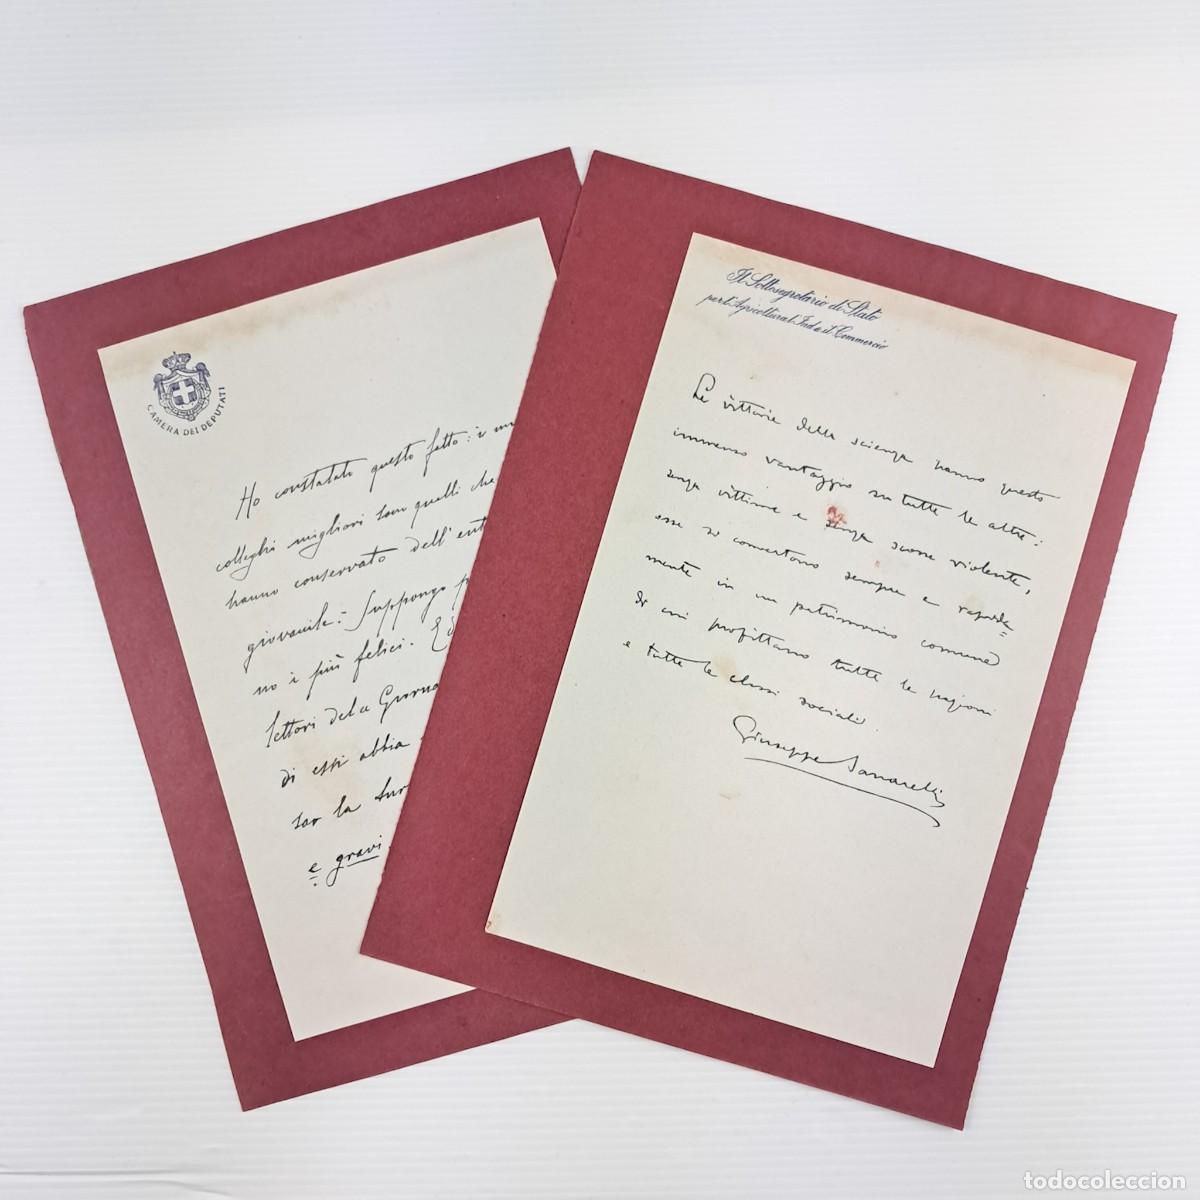 CAMERA DEI DEPUTATI
Ho constatato questo fatto: i
colleghi migliori sono quelli che
hanno conservato dell'ent
giovanile. Suppongo
no i più felici.
lettori della Giorna
di essi abbia
sar la
e gravi.
Il Sottosegretario di Stato
per l'Agricoltura l'Ind. e il Commercio
Le vittorie della scienza hanno questo
immenso vantaggio su tutte le altre:
senza vittime e senza scosse violente,
esse si convertono sempre e rapida=
mente in un patrimonio comune
di cui profittano tutte le nazioni
e tutte le classi sociali
Giuseppe Sanarelli
todocoleccion